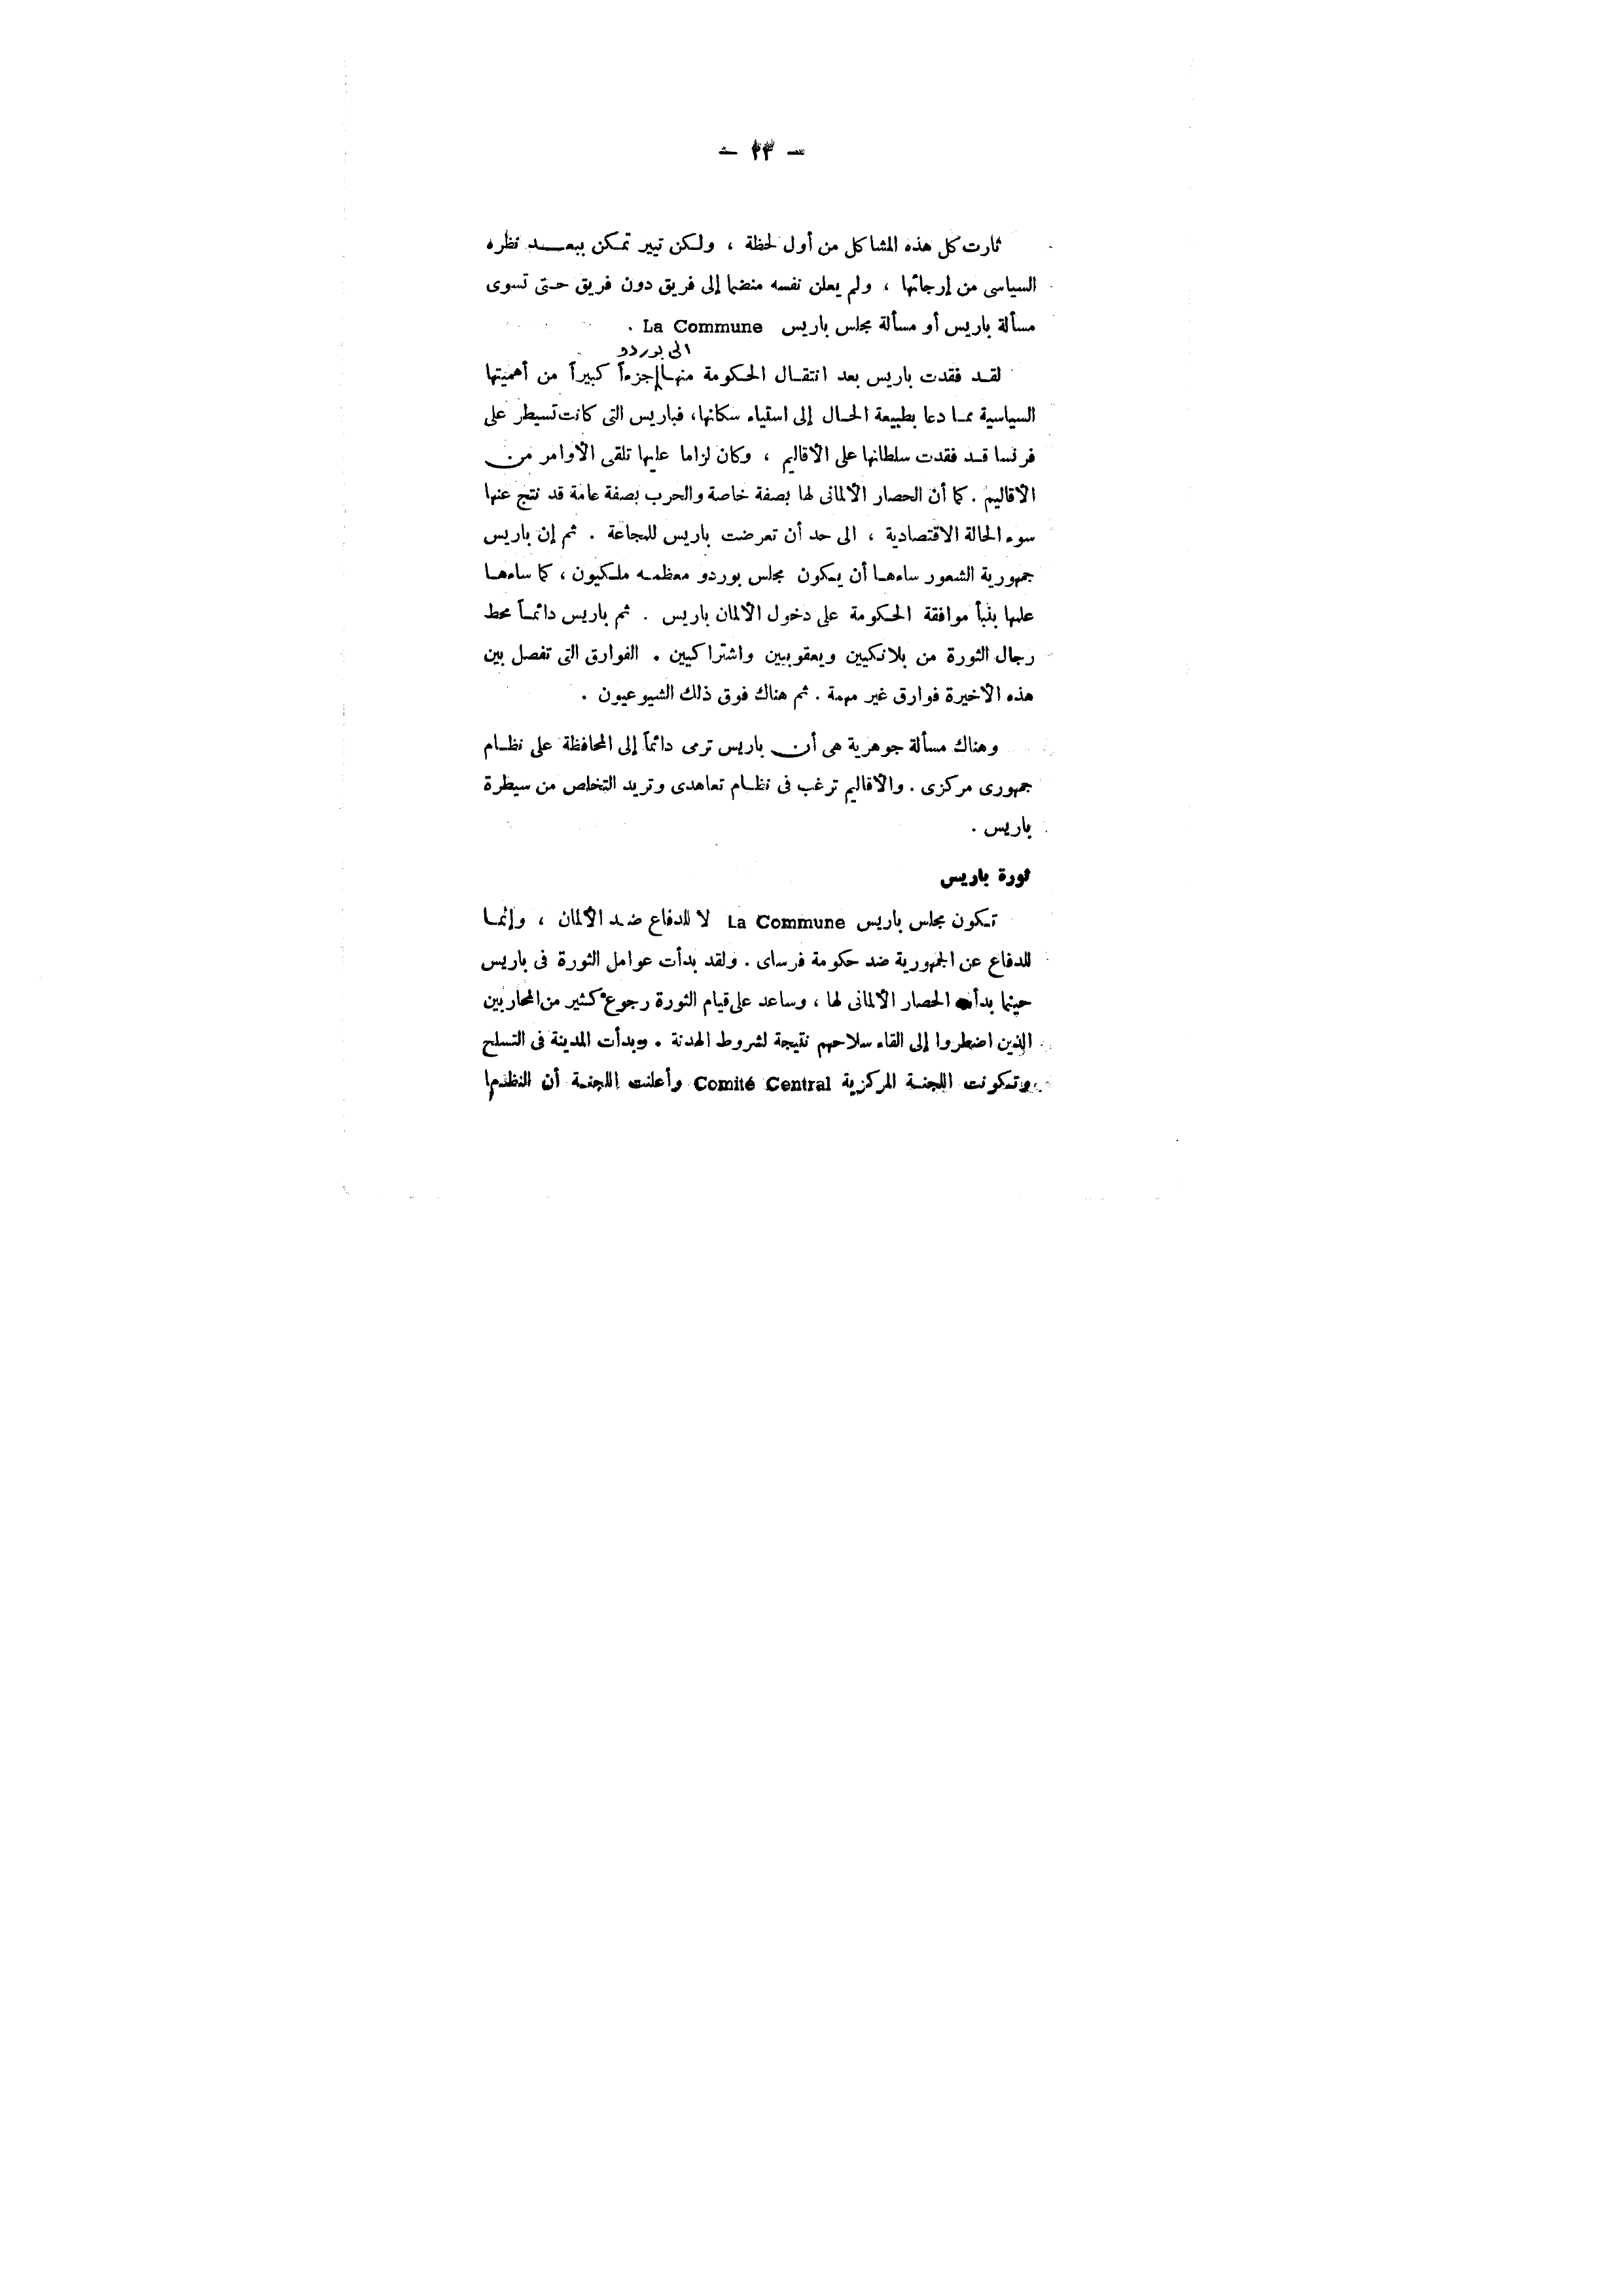 — ٢٣ —
ثارت كل هذه المشاكل من أول لحظة ، ولكن تيير تمكن ببعد نظره
السياسى من إرجائها ، ولم يعلن نفسه منضما إلى فريق دون فريق حتى تسوى
مسألة باريس أو مسألة مجلس باريس La Commune .
الى بوردو
لقد فقدت باريس بعد انتقال الحكومة منها جزءاً كبيراً من أهميتها
السياسية مما دعا بطبيعة الحال إلى استياء سكانها، فباريس التى كانت تسيطر على
فرنسا قد فقدت سلطانها على الأقاليم ، وكان لزاما عليها تلقى الأوامر من
الأقاليم . كما أن الحصار الألمانى لها بصفة خاصة والحرب بصفة عامة قد نتج عنها
سوء الحالة الاقتصادية ، الى حد أن تعرضت باريس للمجاعة . ثم إن باريس
جمهورية الشعور ساءها أن يكون مجلس بوردو معظمه ملكيون ، كما ساءها
علمها بنبأ موافقة الحكومة على دخول الألمان باريس . ثم باريس دائماً محط
رجال الثورة من بلانكيين ويعقوبيين واشتراكيين . الفوارق التى تفصل بين
هذه الأخيرة فوارق غير مهمة . ثم هناك فوق ذلك الشيوعيون .
وهناك مسألة جوهرية هى أن باريس ترمى دائماً إلى المحافظة على نظام
جمهورى مركزى . والأقاليم ترغب فى نظام تعاهدى وتريد التخلص من سيطرة
باريس .
ثورة باريس
تكون مجلس باريس La Commune لا للدفاع ضد الألمان ، وإنما
للدفاع عن الجمهورية ضد حكومة فرساى . ولقد بدأت عوامل الثورة فى باريس
حينما بدأ الحصار الألمانى لها ، وساعد على قيام الثورة رجوع كثير من المحاربين
الذين اضطروا إلى القاء سلاحهم نتيجة لشروط الهدنة . وبدأت المدينة فى التسلح
وتكونت اللجنة المركزية Comité Central وأعلنت اللجنة أن